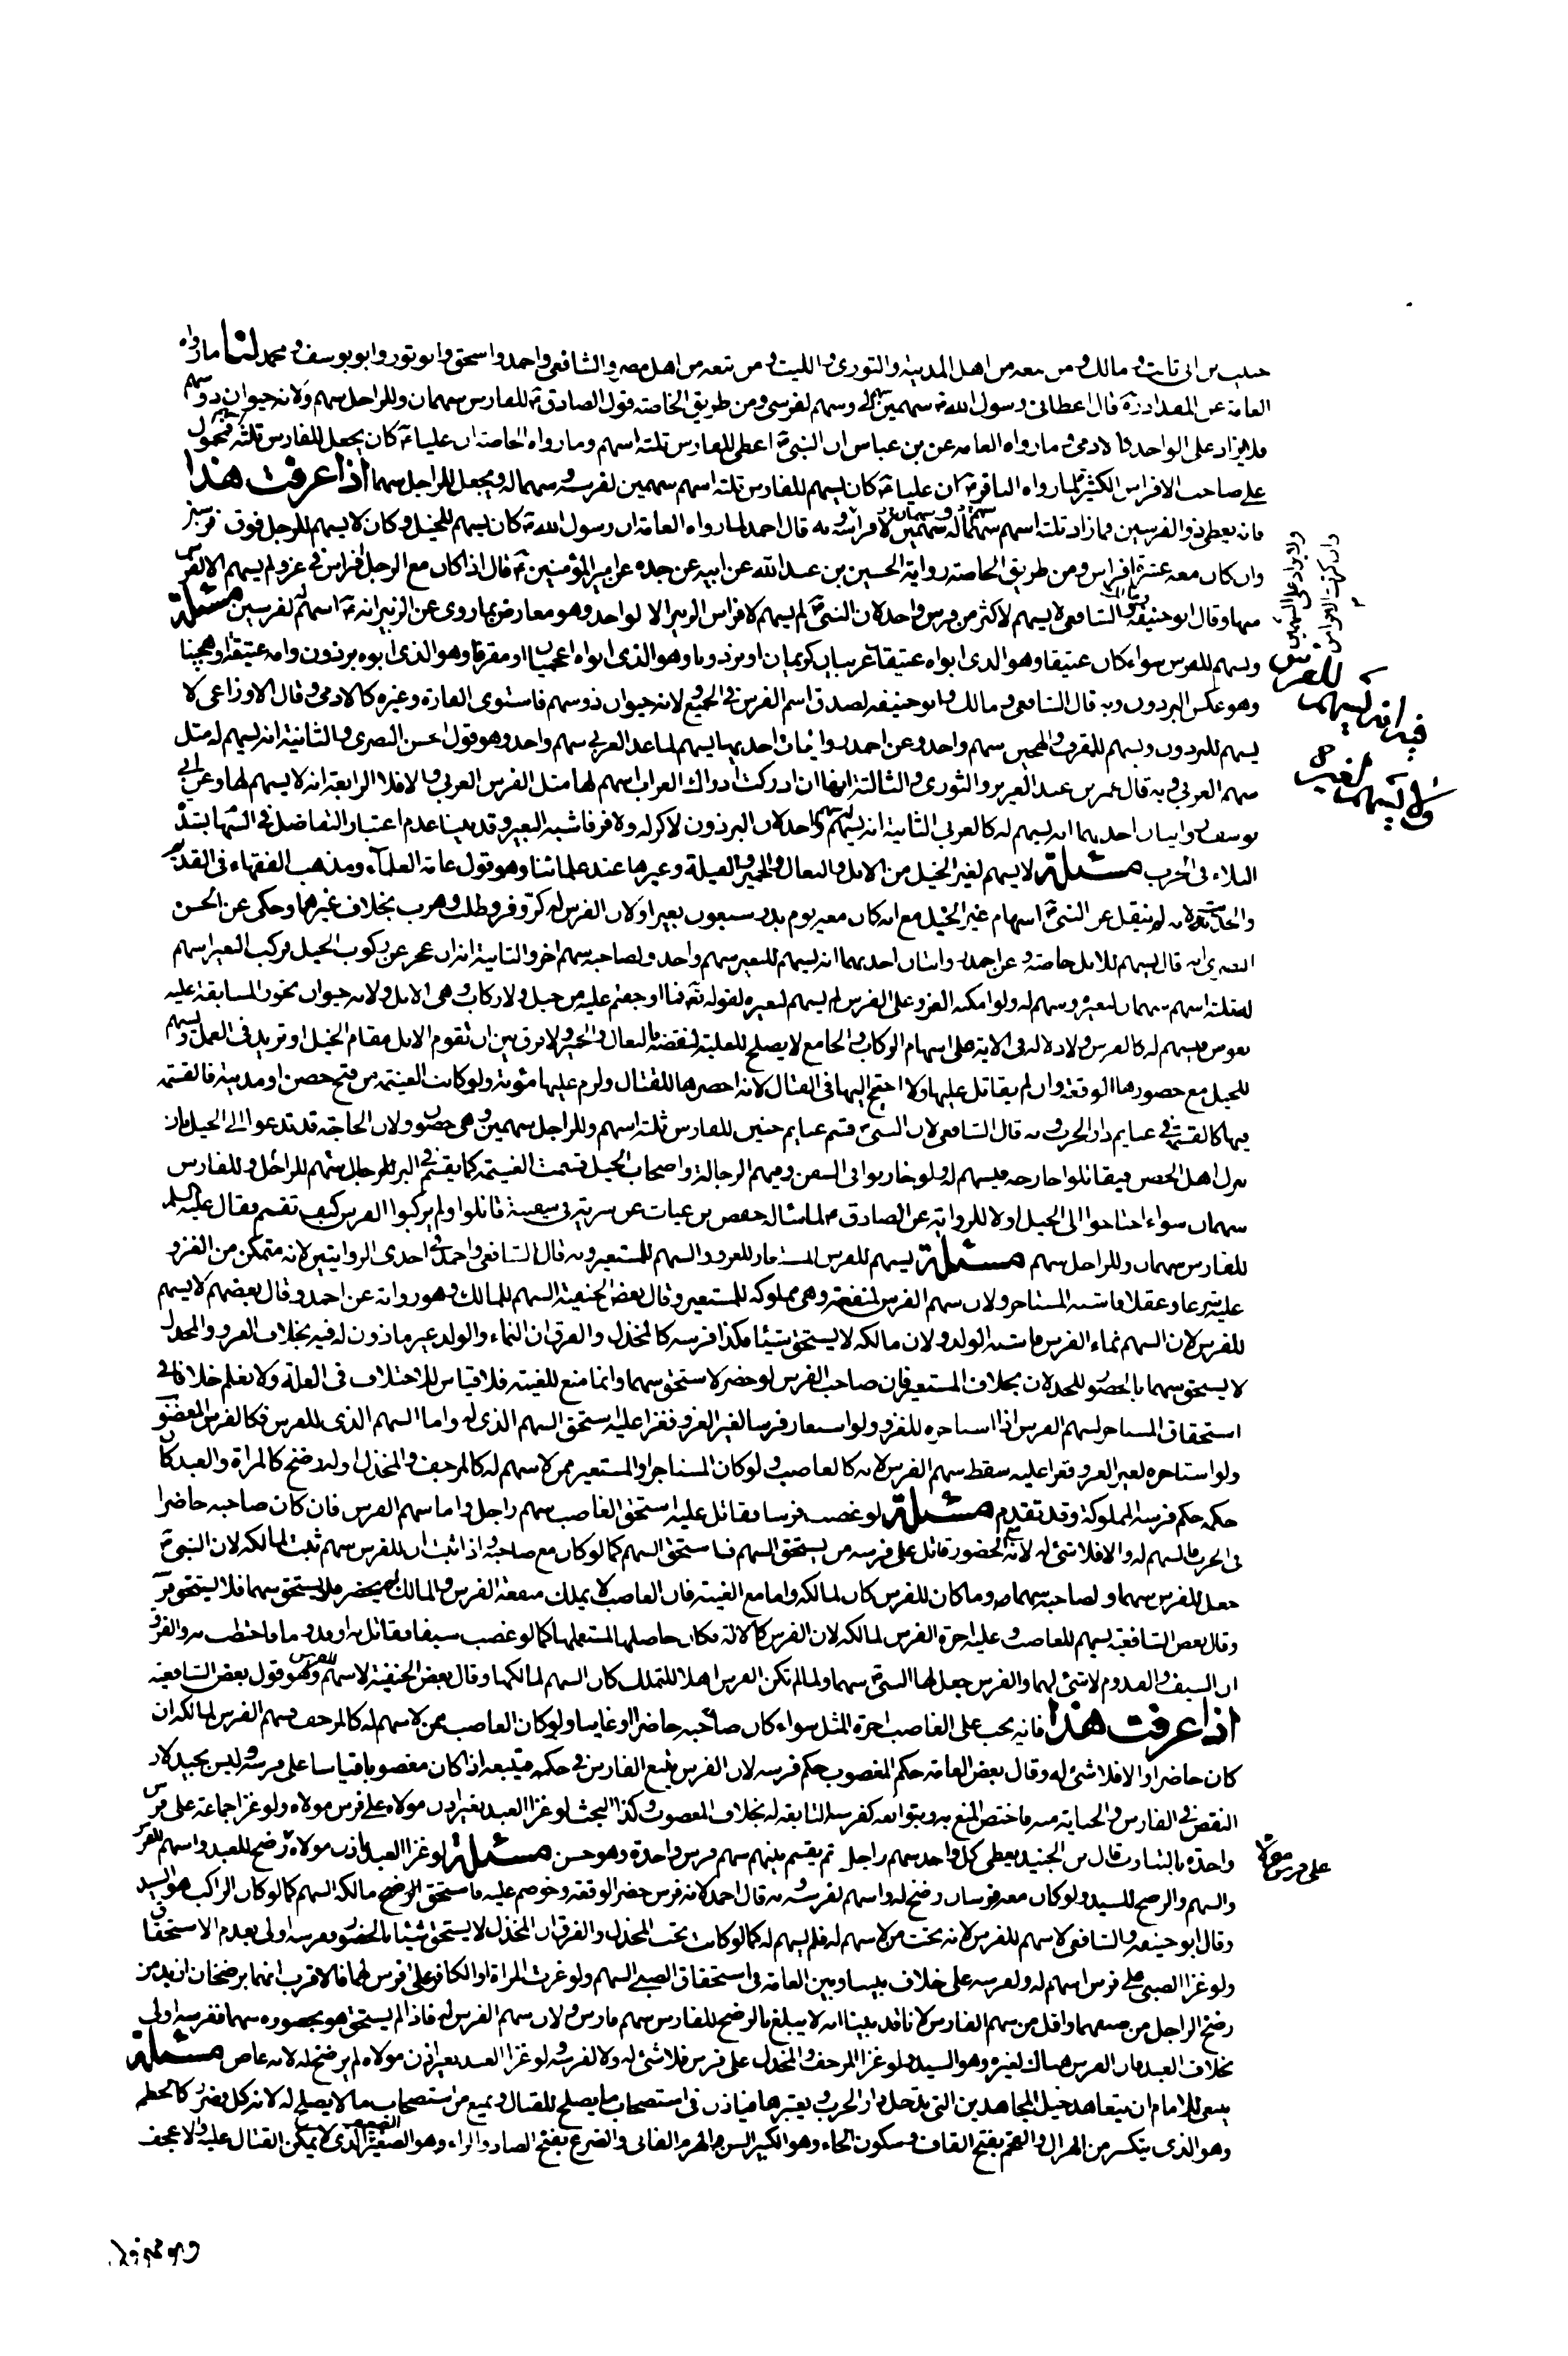 حبيب بن ابي ثابت و مالك و من تبعه من اهل المدينة والثوري و الليث و من تبعه من اهل مصر والشافعي و احمد و اسحق و ابو ثور و ابو يوسف و محمد لنا ما رواه
العامة عن المقداد رة قال اعطاني رسول الله ص سهمين سهم لي وسهم لفرسي ومن طريق الخاصة قول الصادق ع للفارس سهمان وللراجل سهم ولانه حيوان ذو سهم
فلا يزاد على الواحد كالادمي و ما رواه العامه عن بن عباس ان النبي ص اعطى للفارس ثلثه اسهم وما رواه الخاصة ان عليا ع كان يجعل للفارس ثلثة فمحمول
على صاحب الافراس الكثيرة لما رواه الباقر ع ان عليا ع كان يسهم للفارس ثلثه اسهم سهمين لفرسه و سهما له ويجعل للراجل سهما اذا عرفت هذا
فانه يعطى ذو الفرسين فما زاد ثلثه اسهم سهما له و سهمين لافراسه و به قال احمد لما رواه العامة ان رسول الله ص كان يسهم للخيل و كان لا يسهم للرجل فوق فرسين
وان كان معه عشرة افراس ومن طريق الخاصة رواية الحسين بن عبد الله عن ابيه عن جده عن امير المؤمنين ع قال اذا كان مع الرجل افراس في غزو لم يسهم الا لفرسين
منها وقال ابو حنيفة و الشافعي لا يسهم لاكثر من فرس واحد لان النبي ص لم يسهم لافراس الزبير الا لواحد وهو معارض بما روى عن الزبير انه ع اسهم له لفرسين مسئلة
ويسهم للفرس سواء كان عتيقا وهو الذى ابواه عتيقان عربيان كريمان او برذونا وهو الذى ابواه اعجميان او مقرفا وهو الذى ابوه برذون وامه عتيقة او هجينا
وهو عكس البرذون وبه قال الشافعي و مالك و ابو حنيفه لصدق اسم الفرس في الجميع لانه حيوان ذو سهم فاستوى الفاره وغيره كالادمي و قال الاوزاعي لا
يسهم للبرذون ويسهم للمقرف والهجين سهم واحد وعن احمد روايات احديها يسهم لما عدا العربي سهم واحد وهو قول الحسن البصري والثانية انه يسهم له مثل
سهم العربي و به قال عمر بن عبد العزيز و الثوري و الثالثة انها ان ادركت ادراك العراب اسهم لها مثل الفرس العربي و الا فلا الرابعة انه لا يسهم لها وعن ابي
يوسف روايتان احديهما انه يسهم له كالعربي الثانية انه يسهم له سهم واحد لان البرذون لا كر له ولا فر فاشبه البعير و قد بينا عدم اعتبار التفاضل في السهام بشدة
البلاء في الحرب مسئلة لا يسهم لغير الخيل من الابل و البغال و الحمير و الفيلة وغيرها عند علمائنا وهو قول عامة العلماء ومذهب الفقهاء في القديم
والحديث لانه لم ينقل عن النبي ص اسهام غير الخيل مع انه كان معه يوم بدر سبعون بعيرا ولان الفرس له كر و فر و طلب و هرب بخلاف غيرها وحكى عن الحسن
البصري انه قال يسهم للابل خاصة و عن احمد روايتان احديهما انه يسهم للبعير سهم واحد ولصاحبه سهم اخر و الثانية انه ان عجز عن ركوب الخيل فركب البعير اسهم
له ثلثه اسهم سهمان لبعيره وسهم له ولو امكنه الغزو على الفرس لم يسهم لبعيره لقوله تعة فما اوجفتم عليه من خيل ولا ركاب و هي الابل و لانه حيوان تجوز المسابقة عليه
بعوض فيسهم له كالفرس و لا دلاله في الاية على اسهام الركاب و الجامع لا يصلح للعلية لنقضه بالبغال و الحمير و لا فرق بين ان تقوم الابل مقام الخيل او تزيد في العمل ويسهم
للخيل مع حضورها الوقعة وان لم يقاتل عليها ولا احتيج اليها في القتال لانه احضرها للقتال ولزم عليها مؤنة ولو كانت الغنيمة من فتح حصن او مدينة فالقسمة
فيها كالقسمة في غنايم دار الحرب و به قال الشافعي لان النبي ص قسم غنايم حنين للفارس ثلثة اسهم وللراجل سهمين وهي حصون ولان الحاجة قد تدعوا الى الخيل بان
ينزل اهل الحصن فيقاتلوا خارجه فيسهم له ولو حاربوا في السفن و فيهم الرجالة و اصحاب الخيل قسمت الغنيمة كما يقسم في البر للراجل سهم للراجل و للفارس
سهمان سواء احتاجوا الى الخيل اولا للرواية عن الصادق ع لما ساله حفص بن غياث عن سرية في سفينة قاتلوا ولم يركبوا الفرس كيف تقسم فقال عليه السلم
للفارس سهمان وللراجل سهم مسئلة يسهم للفرس المستعار للغزو و السهم للمستعير و به قال الشافعي و احمد في احدى الروايتين لانه متمكن من الغزو
عليه شرعا و عقلا فاشبه المستاجر و لان سهم الفرس لمنفعته وهي مملوكه للمستعير وقال بعض الحنفية السهم للمالك وهو رواية عن احمد و قال بعضهم لا يسهم
للفرس لان السهم نماء الفرس فاشبه الولد و لان مالكه لا يستحق شيئا فكذا فرسه كالمخذل و الفرق ان النماء والولد غير ماذون له فيه بخلاف الغزو و المخذل
لا يستحق سهما بالحضور للخذلان بخلاف المستعير فان صاحب الفرس لو حضر لاستحق سهما وانما منع للغيبه فلا قياس للاختلاف في العلة ولا نعلم خلافا في
استحقاق المستاجر لسهم الفرس اذا استاجره للغزو ولو استعار فرسا لغير الغزو فغزا عليه استحق السهم الذى له و اما السهم الذى للفرس فكالفرس المغصوب
ولو استاجره لغير الغزو فغزا عليه سقط سهم الفرس لانه كالغاصب و لو كان المستاجر او المستعير ممن لا سهم له كالمرجف و المخذل او له رضخ كالمراة والعبد كان
حكمه حكم فرسه المملوكة وقد تقدم مسئلة لو غصب فرسا فقاتل عليه استحق الغاصب سهم راجل و اما سهم الفرس فان كان صاحبه حاضرا
في الحرب فالسهم له و الا فلا شئ له لانه مع الحضور قاتل على فرسه من يستحق السهم فاستحق السهم كما لو كان مع صاحبه و اذا ثبت ان للفرس سهم ثبت لمالكه لان النبي ص
جعل للفرس سهما ولصاحبه سهما وما كان للفرس كان لمالكه واما مع الغيبه فان الغاصب لا يملك منفعة الفرس و المالك لم يحضر فلا يستحق سهما فلا يستحق فرسه
وقال بعض الشافعية يسهم للغاصب و عليه اجرة الفرس لمالكه لان الفرس كالالة فكان حاصلها لمستعملها كما لو غصب سيفا فقاتل به او قدوما فاحتطب به و الفرق
ان السيف و القدوم لا شئ لهما و الفرس جعل لها النبي ص سهما ولما لم تكن الفرس اهلا للتملك كان السهم لمالكها وقال بعض الحنفية لا سهم للفرس وهو قول بعض الشافعيه
اذا عرفت هذا فانه يجب على الغاصب اجرة المثل سواء كان صاحبه حاضرا او غايبا ولو كان الغاصب ممن لا سهم له كالمرجف فسهم الفرس لمالكه ان
كان حاضرا و الا فلا شئ له وقال بعض العامة حكم المغصوب حكم فرسه لان الفرس يتبع الفارس في حكمه فيتبعه اذا كان مغصوبا قياسا على فرسه و ليس بجيد لان
النقص في الفارس و الجناية منه فاختص المنع به و بتوابعه كفرسه التابعة له بخلاف المغصوب و كذا البحث لو غزا العبد بغير اذن مولاه على فرس مولاه ولو غزا جماعة على فرس
واحدة بالتناوب قال بن الجنيد يعطى كل واحد سهم راجل ثم يقسم بينهم سهم فرس واحدة وهو حسن مسئلة لو غزا العبد باذن مولاه رضخ للعبد و اسهم للفرس
والسهم والرضخ للسيد و لو كان معه فرسان رضخ له و اسهم لفرسيه و به قال احمد لانه فرس حضر الوقعة وخوصم عليه فاستحق مالكه السهم كما لو كان الراكب هو السيد
وقال ابو حنيفه و الشافعي لا سهم للفرس لانه تحت من لا سهم له فلم يسهم له كما لو كانت تحت المخذل و الفرق ان المخذل لا يستحق شيئا بالحضور ففرسه اولى بعدم الاستحقاق
ولو غزا الصبي على فرس اسهم له ولفرسه على خلاف بيننا وبين العامة في استحقاق الصبي السهم ولو غزت المراة او الكافر على فرس لهما فالاقرب انهما يرضخان ازيد من
رضخ الراجل من صنفهما واقل من سهم الفارس لانا قد بينا انه لا يبلغ بالرضخ للفارس سهم فارس و لان سهم الفرس له فاذا لم يستحق هو بحضوره سهما ففرسه اولى
بخلاف العبد فان الفرس هناك لغيره وهو السيد و لو غزا المرجف و المخذل على فرس فلا شئ له ولا لفرسه و لو غزا العبد بغير اذن مولاه لم يرضخ له لانه عاص مسئلة
ينبغي للامام ان يتعاهد خيل المجاهدين التي تدخل دار الحرب و يعتبرها فياذن في استصحاب ما يصلح للقتال و يمنع من استصحاب ما لا يصلح له لانه كل يضر كالحطم
وهو الذى يتكسر من الهزال و القحم بفتح القاف وسكون الحاء وهو الكبير السن و الهرم الفاني والضرع بفتح الضاد و الراء وهو الصغير الضعيف الذى لا يمكن القتال عليه ولا اعجف
ولا يزاد على السهمين
وان كثرت الافراس
للفرس
فيه انه ليسهم
على فرس مولاه